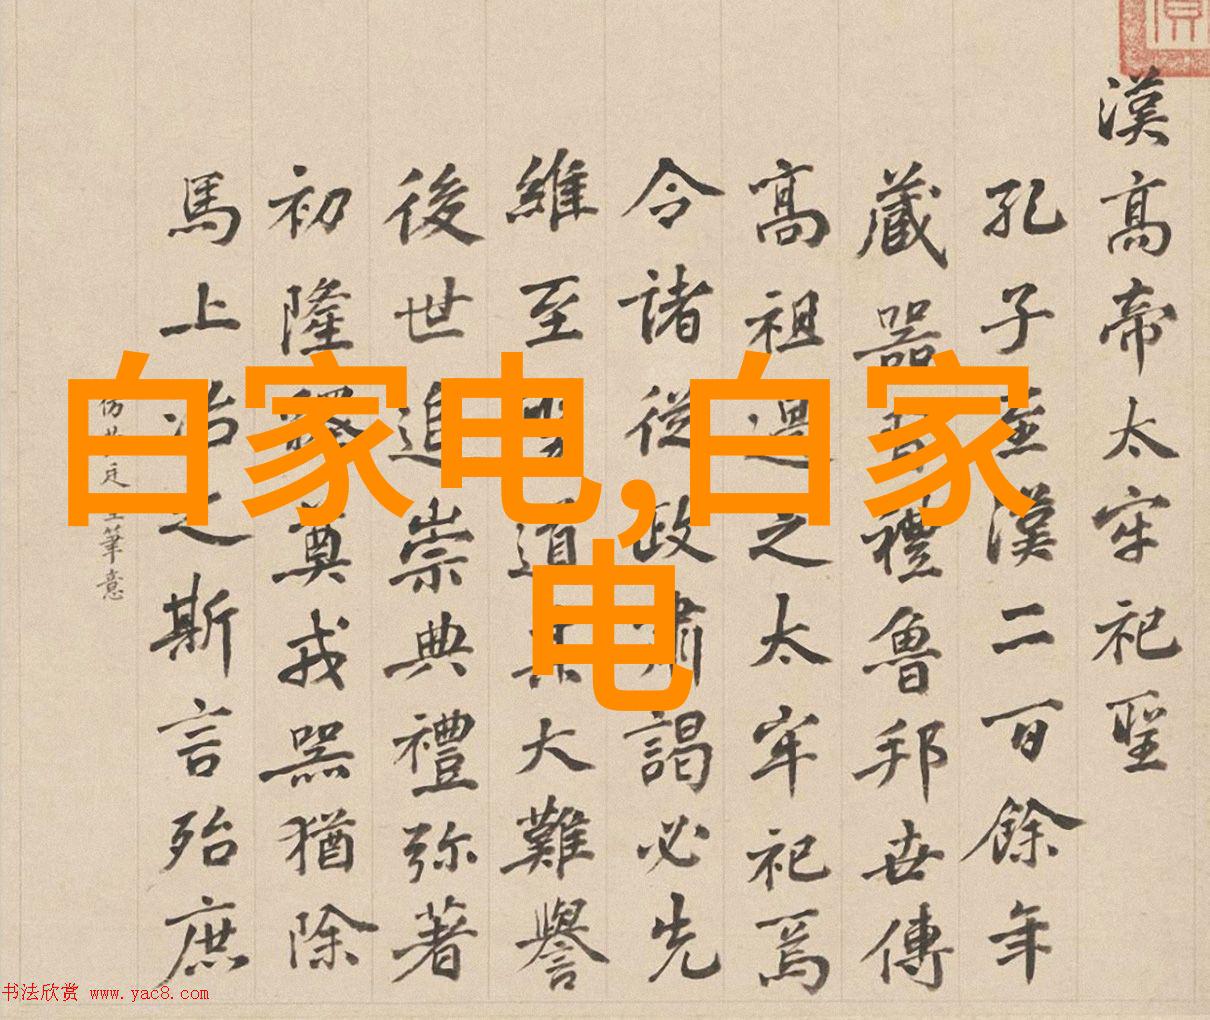 漢高帝太牢祀聖
孔子至漢二百餘年
藏器 禮魯邦世傳
高祖過之太牢祀焉
令諸從政肅謁必先
維至聖道其大難譽
後世追崇典禮弥著
初隆 奠戎器猶除
馬上治之斯言殆庶
筆意
白家电,白家
电
书法欣赏 www.yac8.com